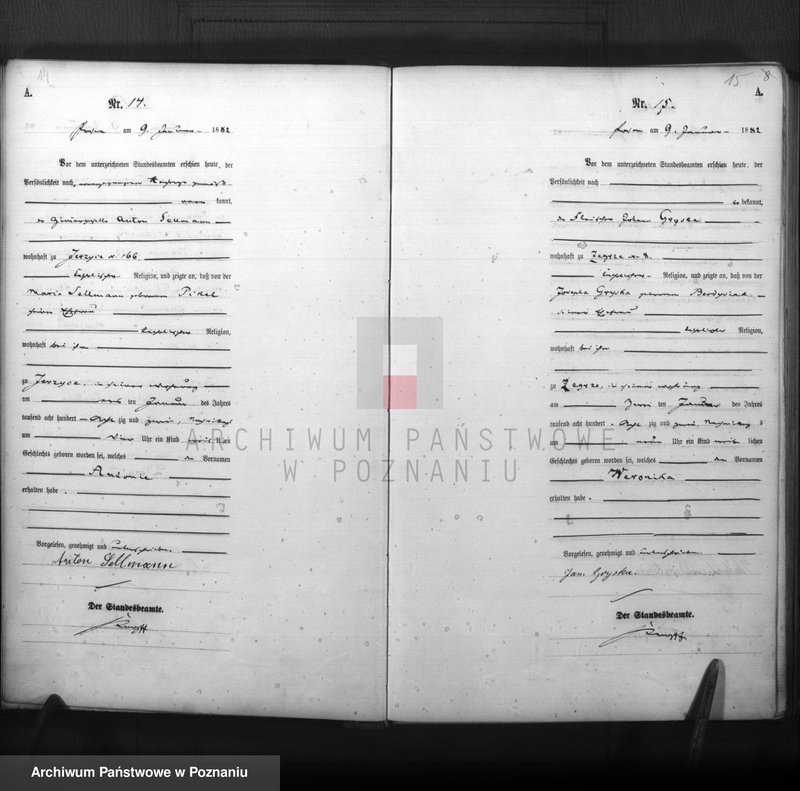 14
A.
Nr. 14.
Posen am 9. Januar 1882
Vor dem unterzeichneten Standesbeamten erschien heute, der
Persönlichkeit nach,
kannt,
Anton Sellmann
wohnhaft zu Jerzyce No 166
katholischer Religion, und zeigte an, daß von der
Maria Sellmann geborenen Pikel
seiner Ehefrau
katholischer Religion,
wohnhaft bei ihm
zu Jerzyce, in seiner Wohnung
am den Januar des Jahres
tausend acht hundert achtzig und zwei, Nachmittags
um vier Uhr ein Kind weiblichen
Geschlechts geboren worden sei, welches den Vornamen
Antonie
erhalten habe.
Vorgelesen, genehmigt und unterschrieben.
Anton Sellmann
Der Standesbeamte.
15 8
A.
Nr. 15.
Posen am 9. Januar 1882
Vor dem unterzeichneten Standesbeamten erschien heute, der
Persönlichkeit nach
bekannt,
der Fleischer Johann Gryska
wohnhaft zu Zegrze No 8.
katholischer Religion, und zeigte an, daß von der
Josepha Gryska geborenen
seiner Ehefrau
katholischer Religion,
wohnhaft bei ihm
zu Zegrze, in seiner Wohnung
am zwei ten Januar des Jahres
tausend acht hundert achtzig und zwei, Nachmittags
um neun Uhr ein Kind weiblichen
Geschlechts geboren worden sei, welches den Vornamen
Weronika
erhalten habe.
Vorgelesen, genehmigt und unterschrieben.
Jan Gryska.
Der Standesbeamte.
ARCHIWUM PAŃSTWOWE
W POZNANIU
Archiwum Państwowe w Poznaniu